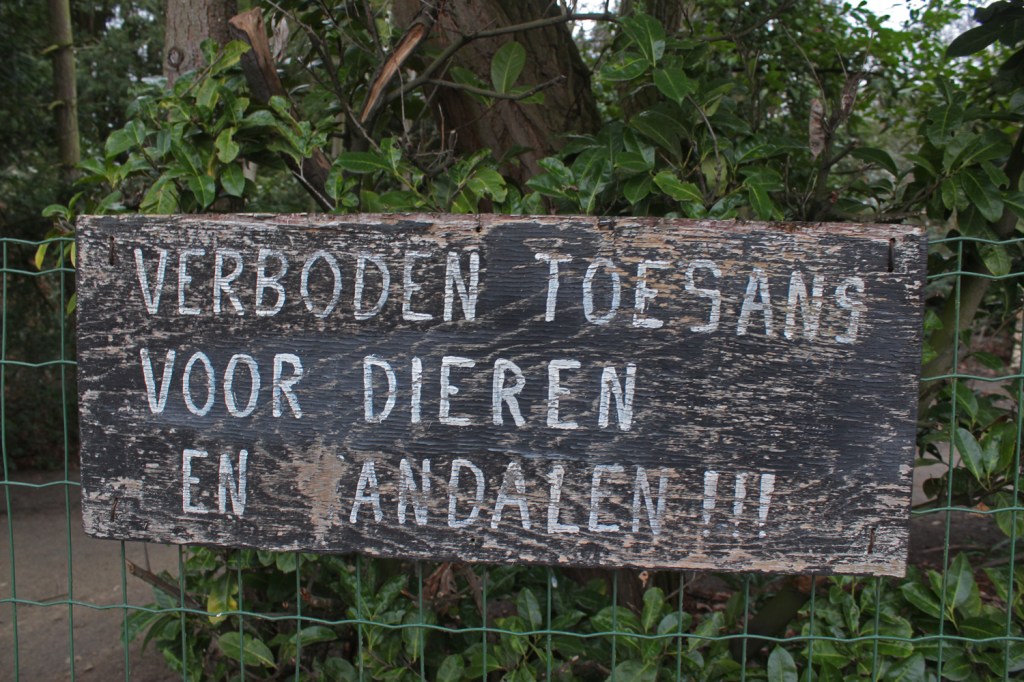 VERBODEN TOESANS
VOOR DIEREN
EN 'ANDALEN !!!